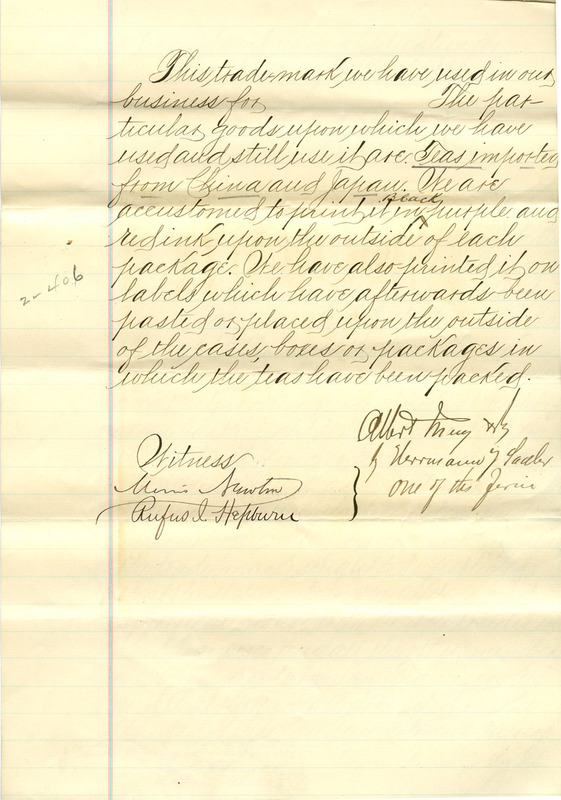 This trade-mark we have used in our
business for The par-
ticular goods upon which we have
used and still use it are. Teas imported
from China and Japan. We are
black
accustomed to print it in purple and
red ink upon the outside of each
package. We have also printed it on
labels which have afterwards been
pasted or placed upon the outside
of the cases, boxes or packages in
which the teas have been packed.
2-406
Albert
by Herrmann
one of the firm
Witness
Newton
Rufus Hepburn